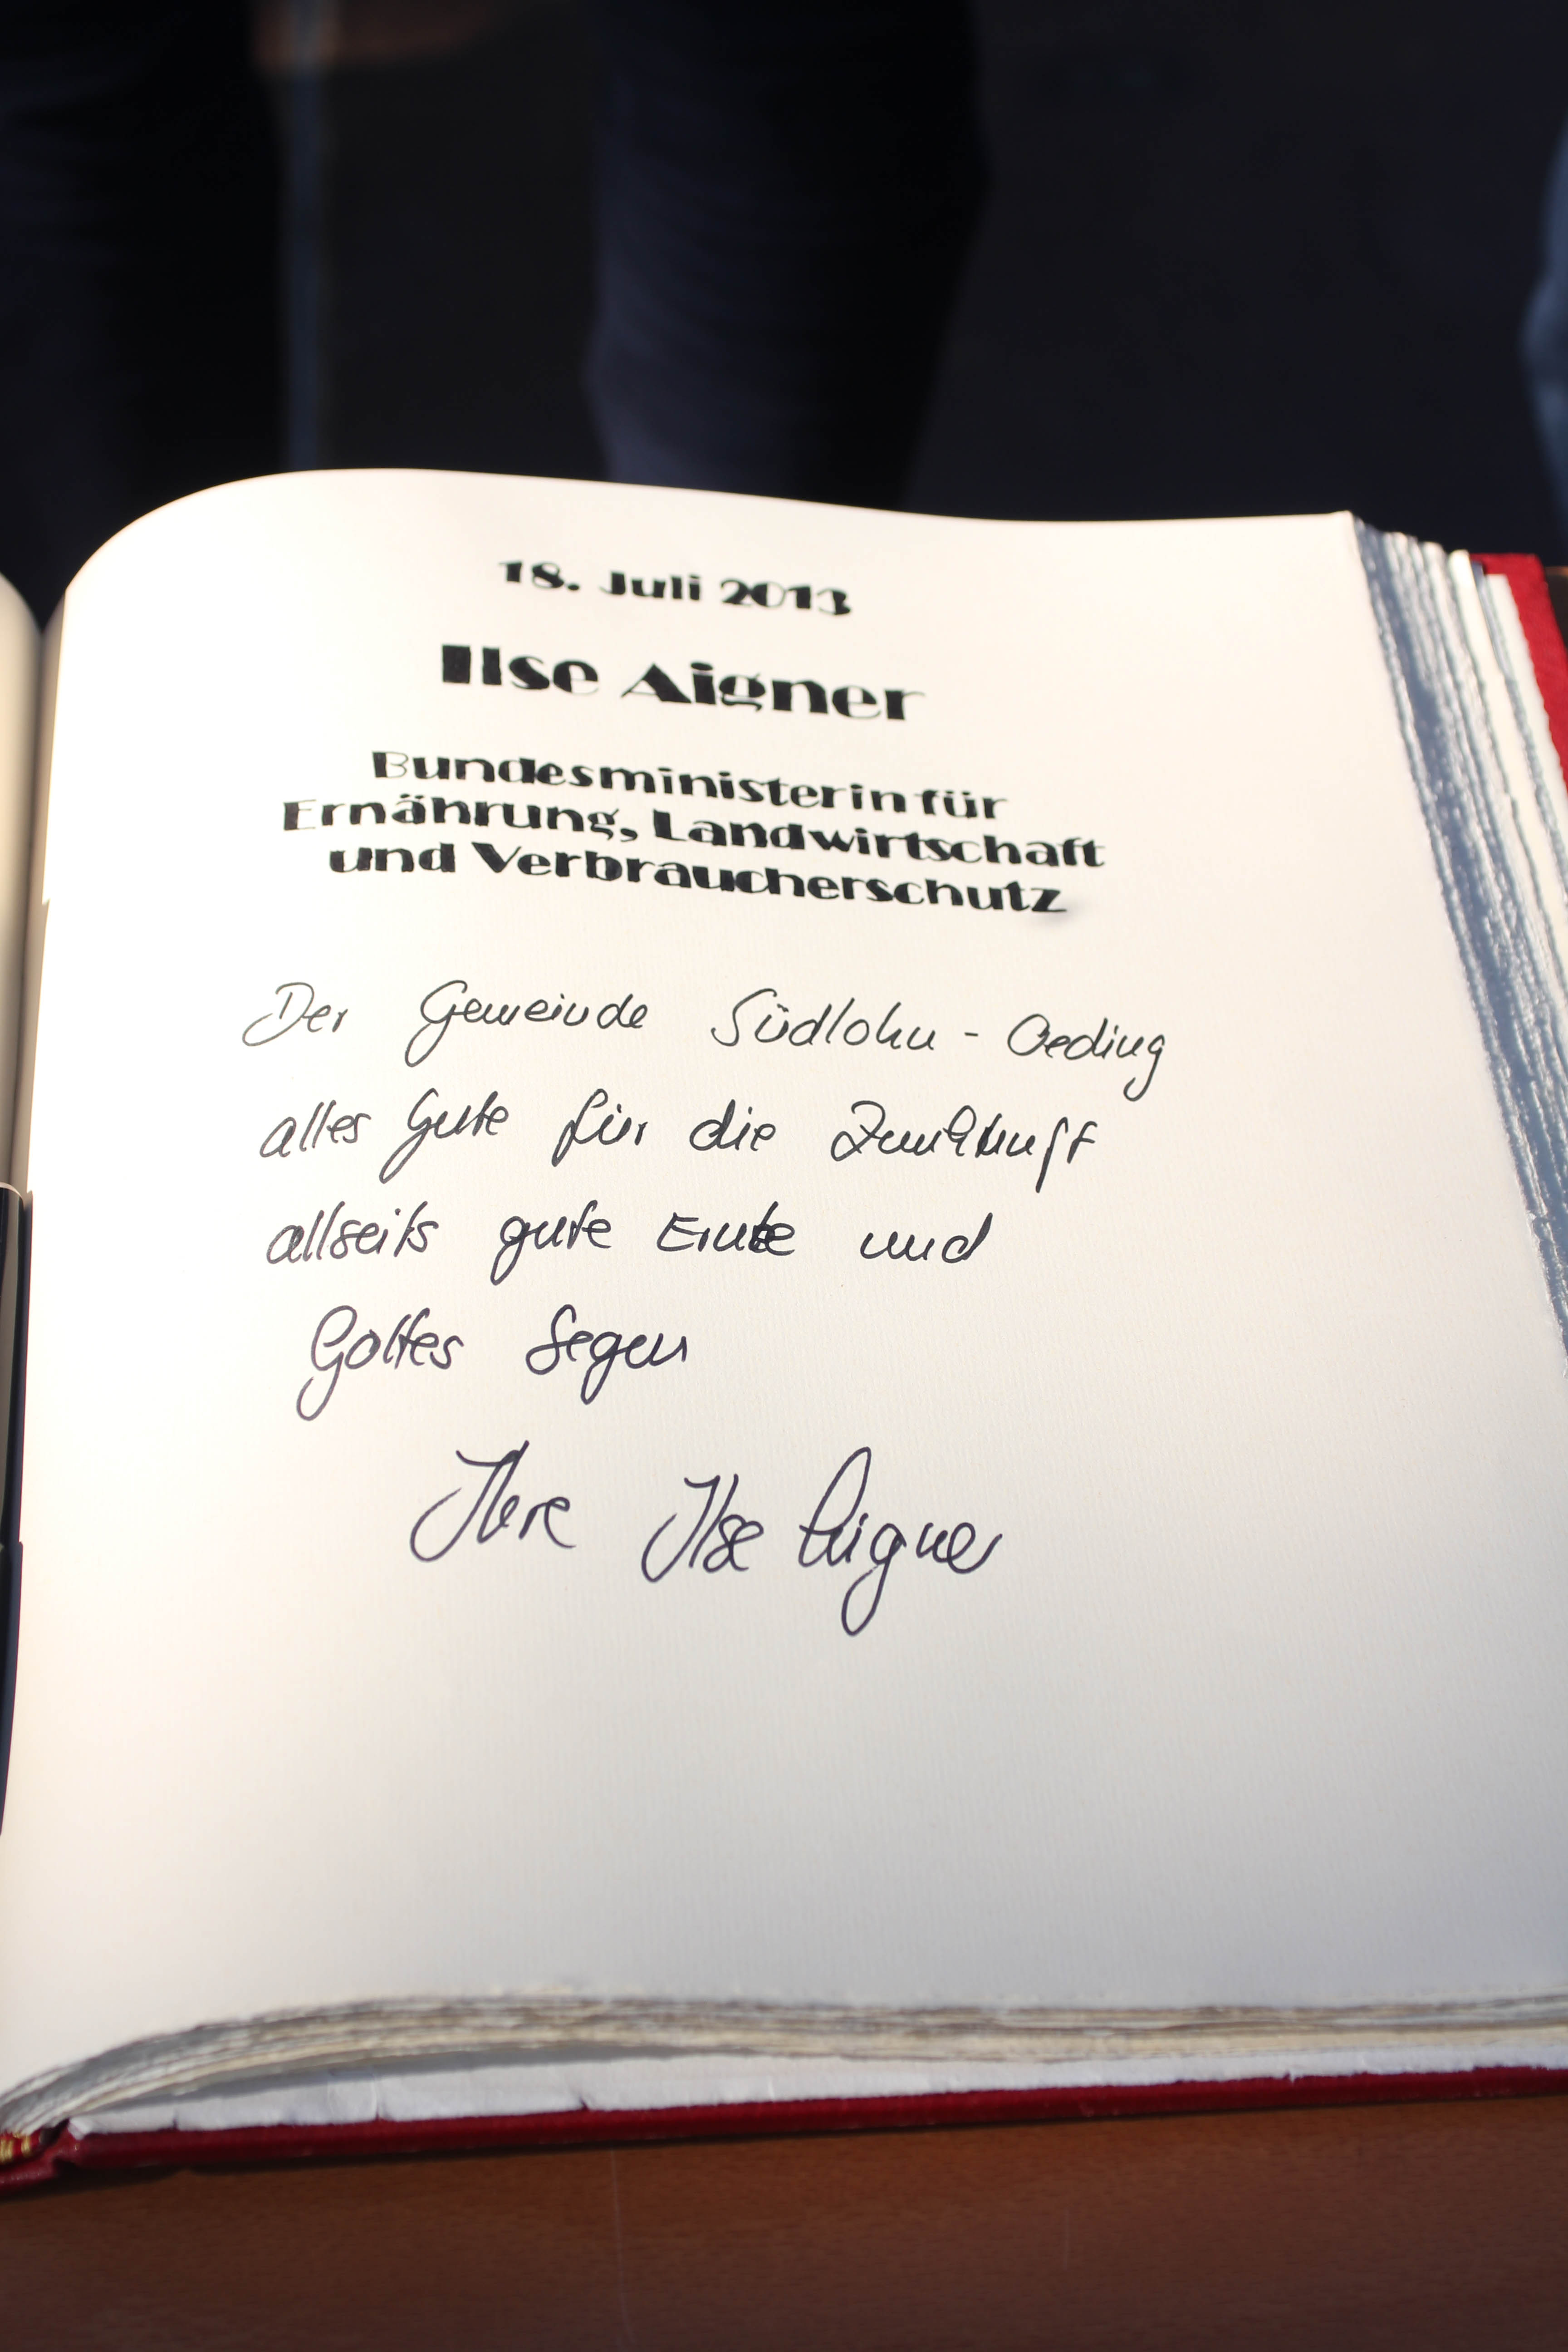 18. Juli 2013
Ilse Aigner
Bundesministerin für
Ernährung, Landwirtschaft
und Verbraucherschutz
Der Gemeinde Südlohn - Oeding
alles Gute für die Zunkunft
allseits gute Ernte und
Gottes Segen
Ihre Ilse Aigner